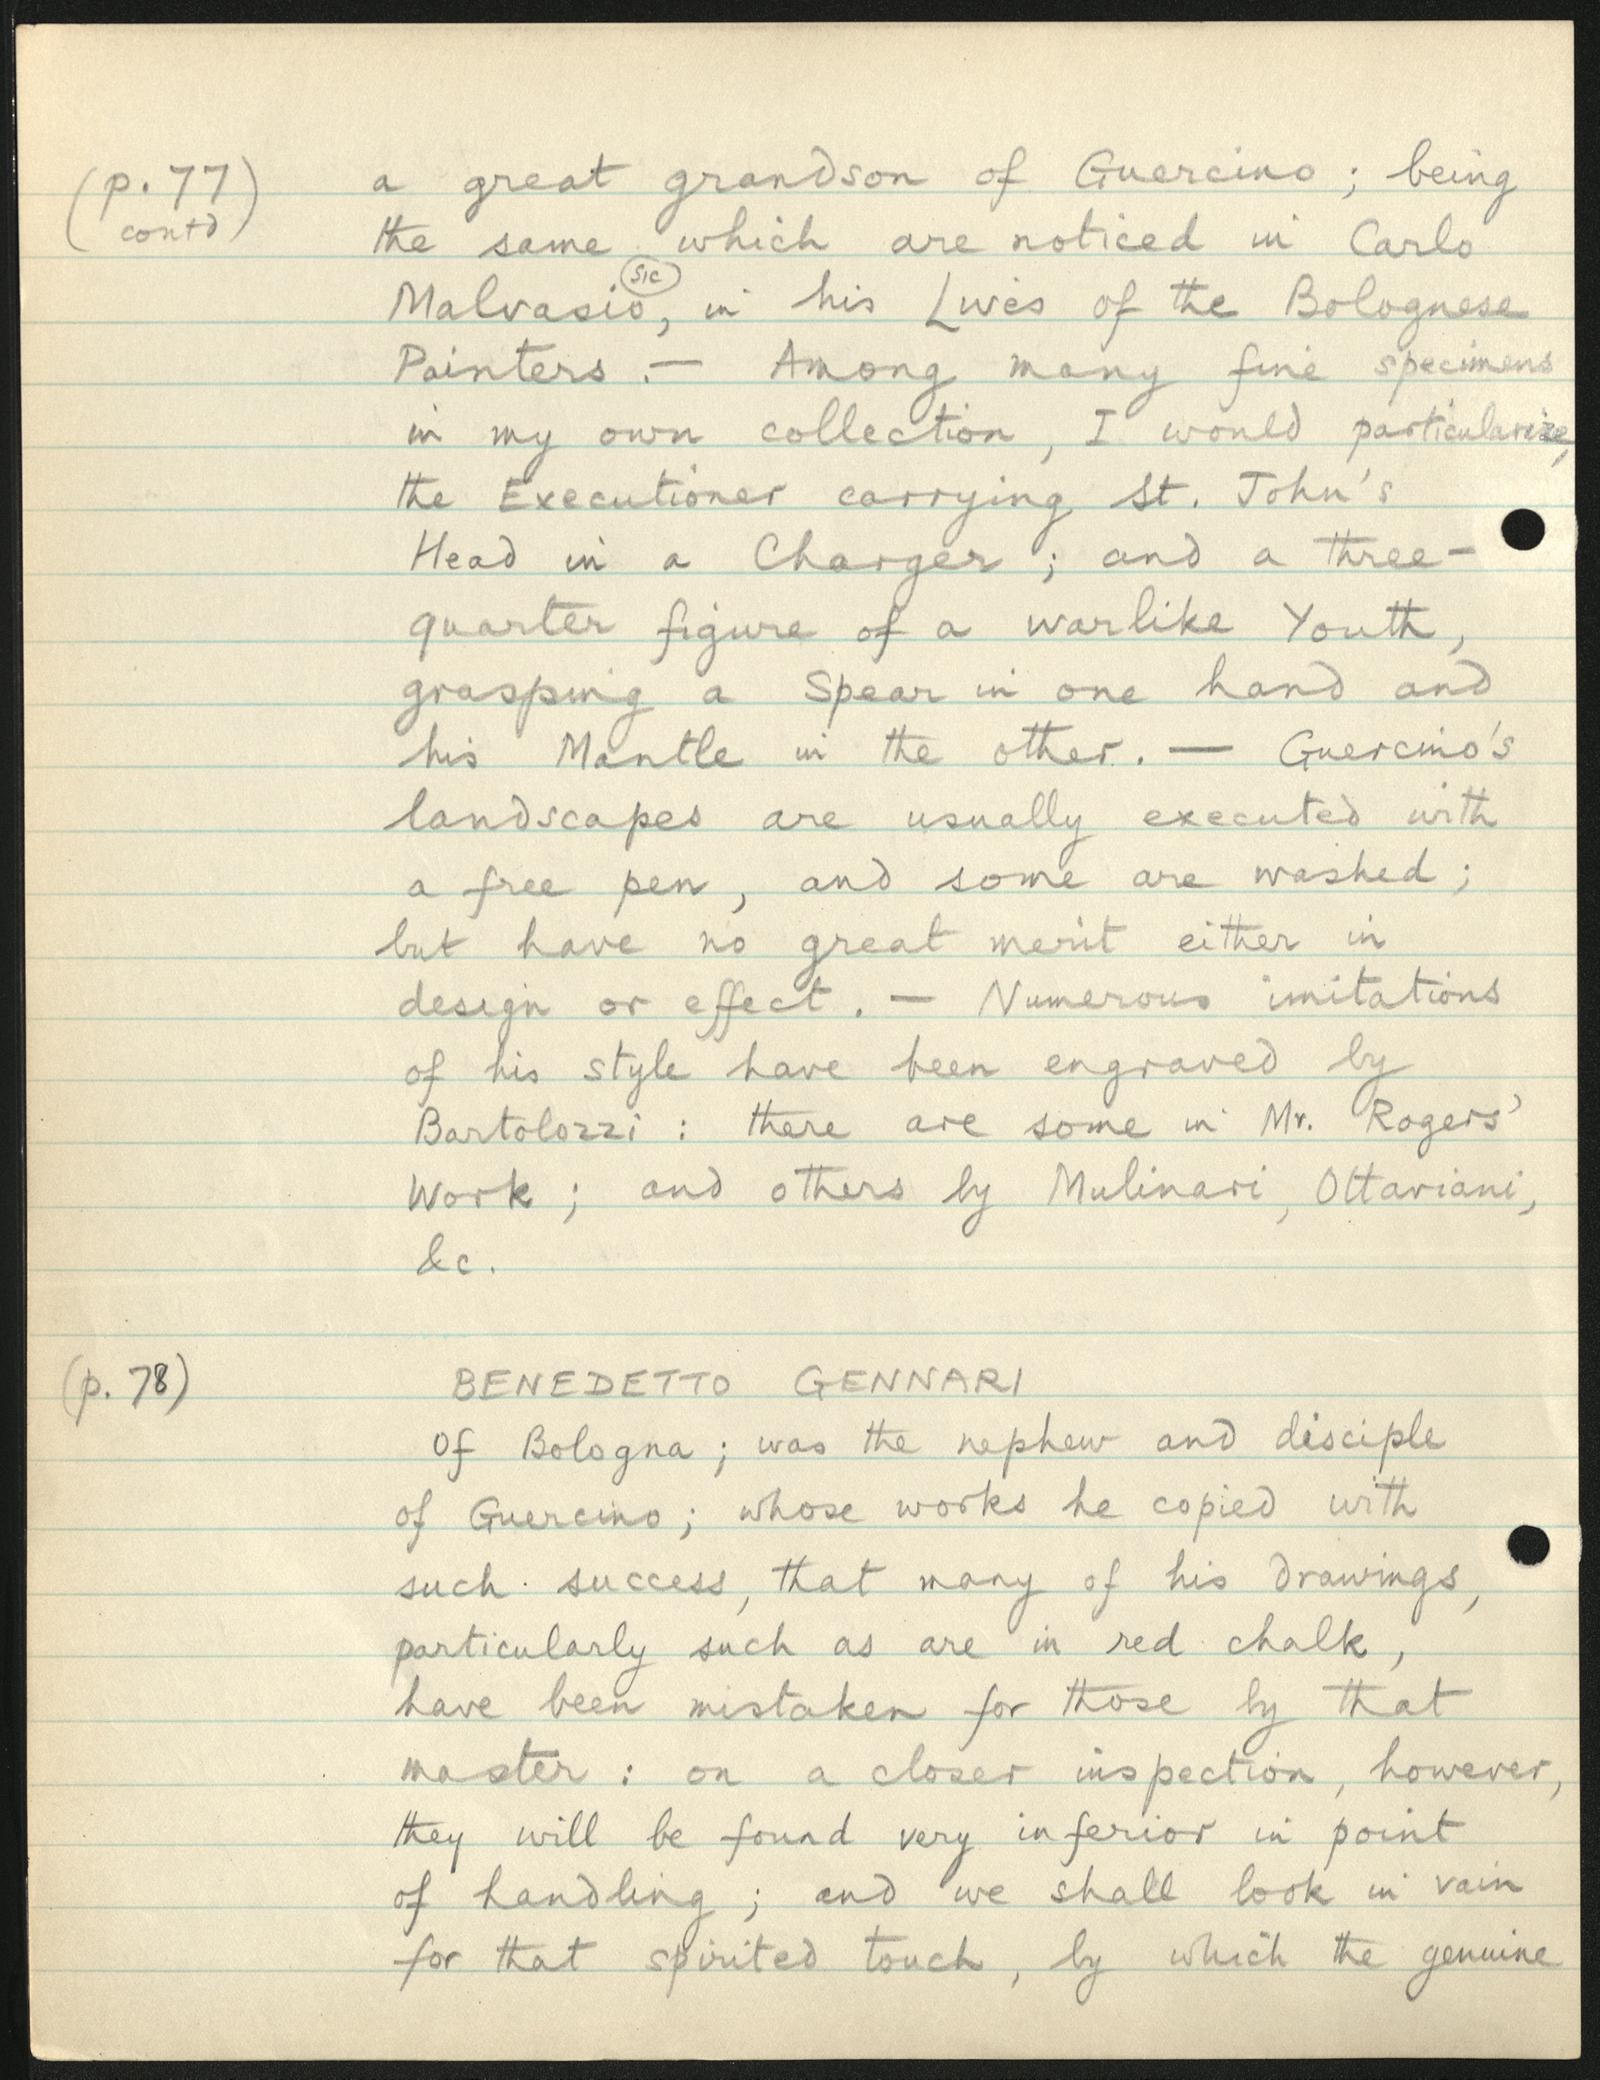 (p. 77 contd) a great grandson of Guercino ; being
the same which are noticed in Carlo
Malvasio (sic), in his Lives of the Bolognese
Painters. — Among many fine specimens
in my own collection, I would particularize,
the Executioner carrying St. John's
Head in a Charger ; and a three-
quarter figure of a warlike Youth,
grasping a Spear in one hand and
his Mantle in the other. — Guercino's
landscapes are usually executed with
a free pen, and some are washed ;
but have no great merit either in
design or effect. — Numerous imitations
of his style have been engraved by
Bartolozzi : there are some in Mr. Rogers'
Work ; and others by Mulinari, Ottaviani,
&c.
(p. 78) BENEDETTO GENNARI
Of Bologna ; was the nephew and disciple
of Guercino ; whose works he copied with
such success, that many of his drawings,
particularly such as are in red chalk,
have been mistaken for those by that
master : on a closer inspection, however,
they will be found very inferior in point
of handling ; and we shall look in vain
for that spirited touch, by which the genuine